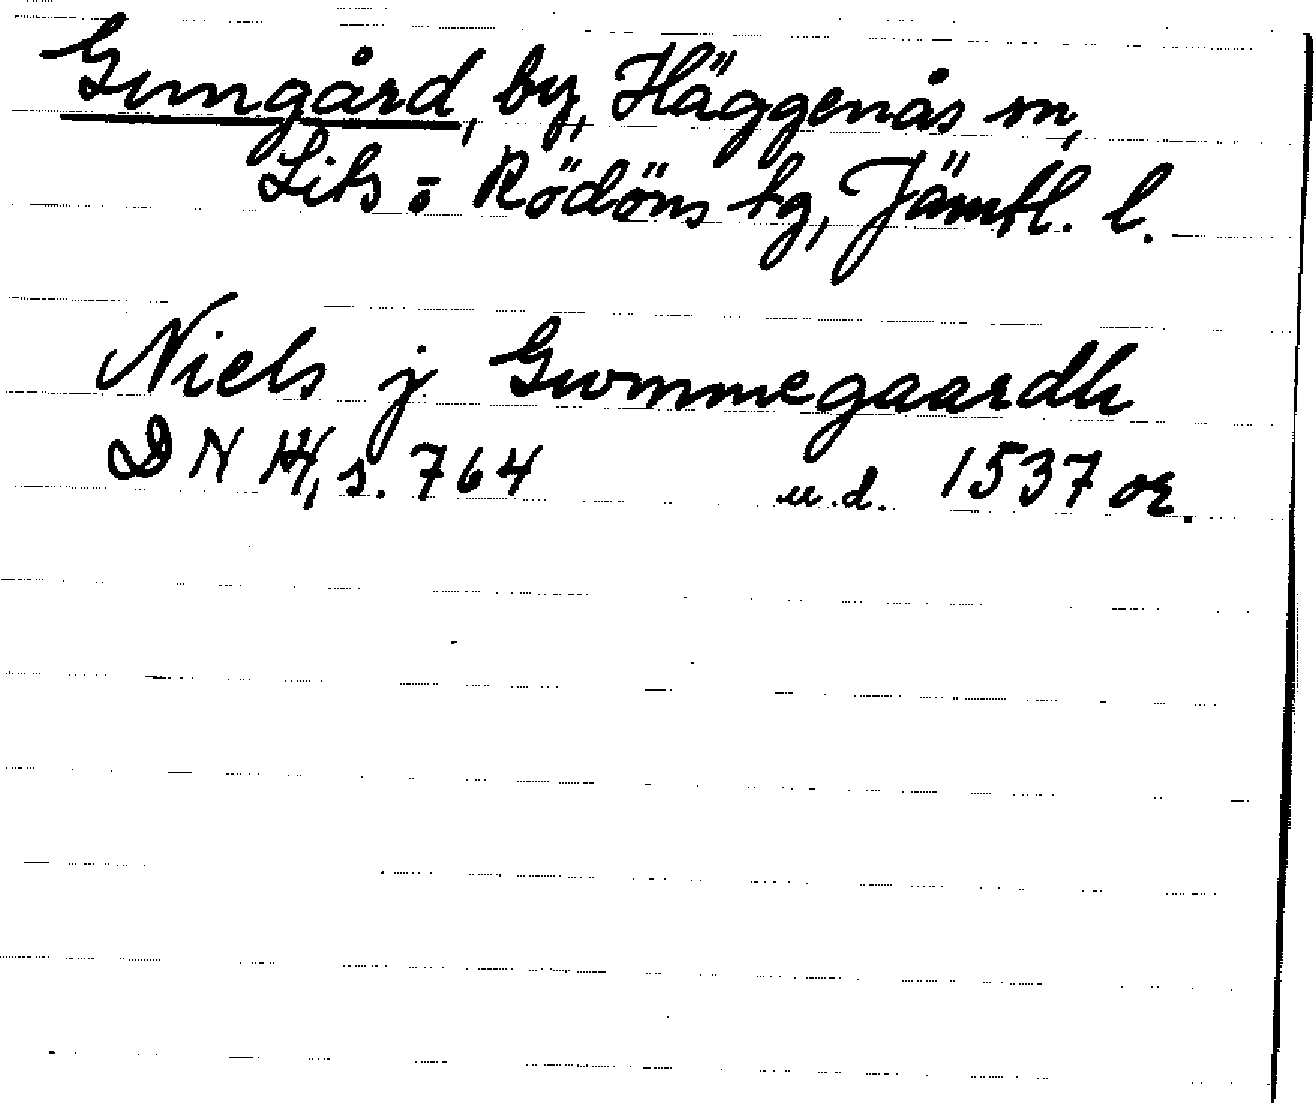 Gumgård, by, Häggenås sn,
Lits o Rödöns tg, Jämtl. l.
Niels j Gwmmegaardh
DN 14, s. 764 u.d. 1537 or.